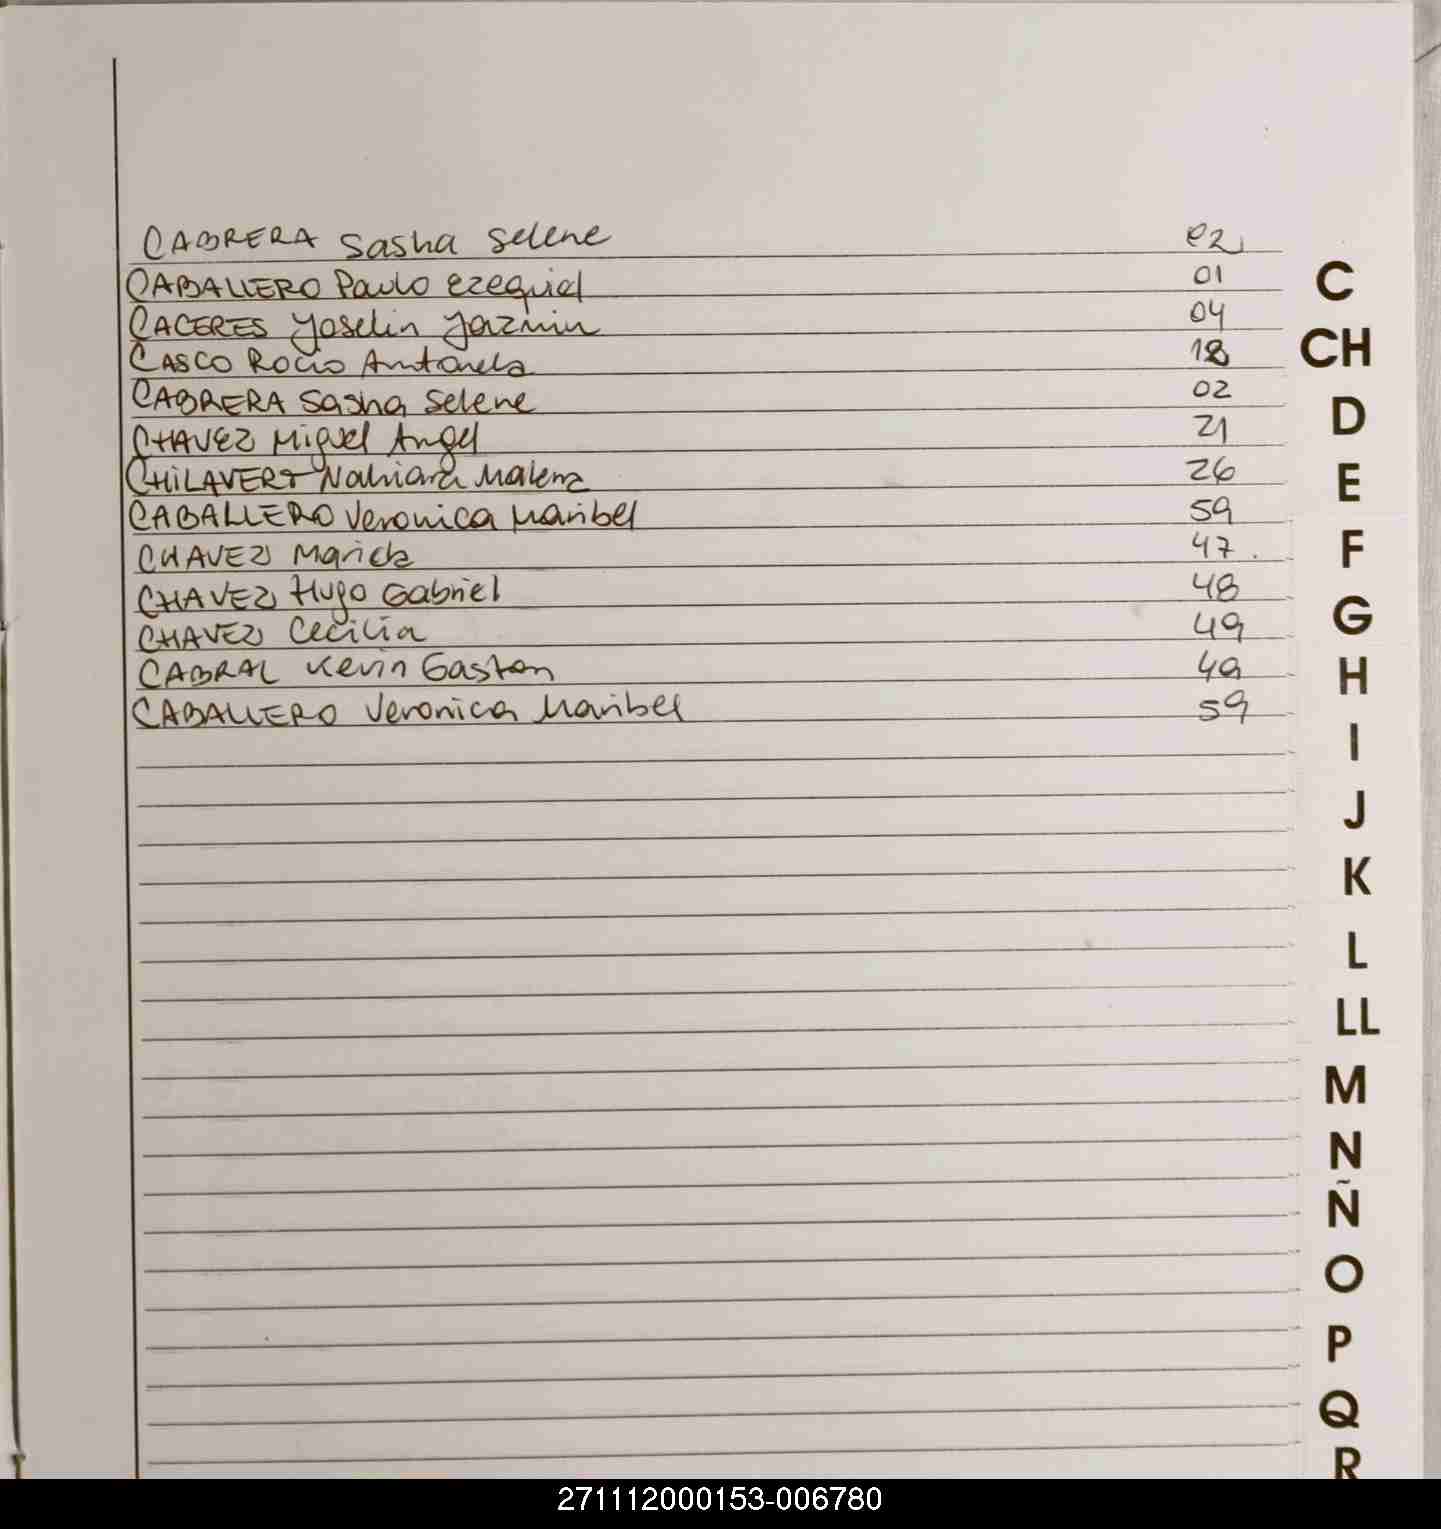 CABRERA Sasha Selene 02
CABALLERO Paulo Ezequiel 01
CACERES Yoselin Yazmin 04
CASCO Rocio Antonela 18
CABRERA Sasha Selene 02
CHAVEZ Miguel Angel 21
CHILAVERT Nahiara Malena 26
CABALLERO Veronica Maribel 59
CHAVEZ Mariela 47
CHAVEZ Hugo Gabriel 48
CHAVEZ Cecilia 49
CABRAL Kevin Gaston 49
CABALLERO Veronica Maribel 59
C
CH
D
E
F
G
H
I
J
K
L
LL
M
N
Ñ
O
P
Q
R
271112000153-006780